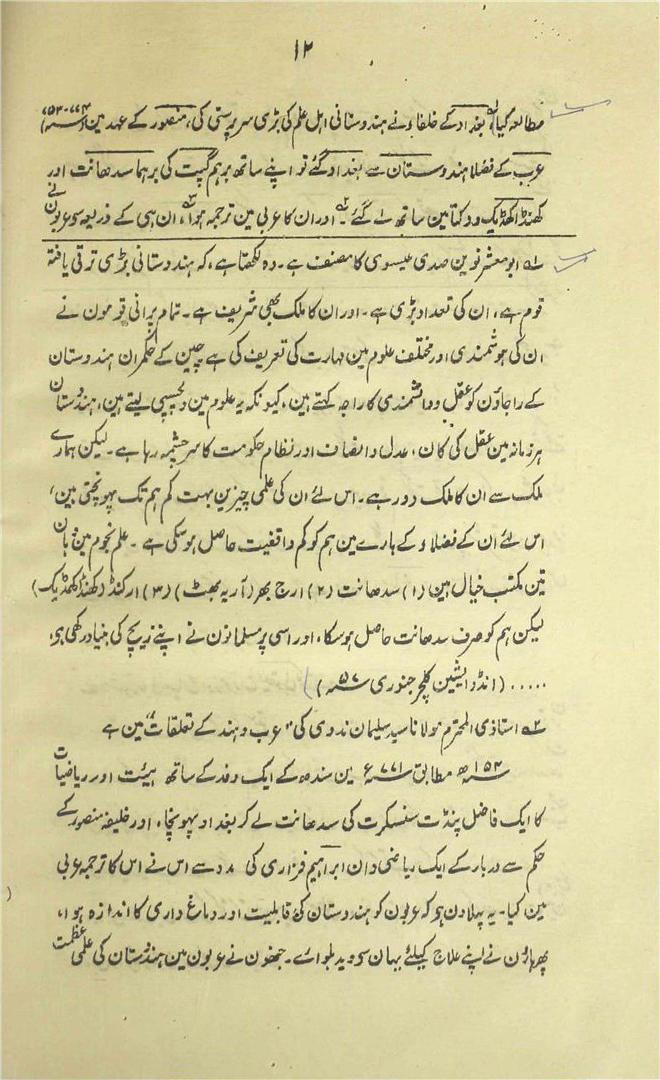 ۱۲
مطالعہ کیا، بغداد کے خلفاء نے ہندوستانی اہل علم کی بڑی سرپرستی کی، منصور کے عہد مین (۷۷۴-۷۵۳ء)
عرب کے فضلا ہندوستان سے بغداد گئے تو اپنے ساتھ برہم گپت کی برہما سدھانت اور
کھنڈ اکھڈیک دو کتابین ساتھ لے گئے۔ اور ان کا عربی مین ترجمہ ہوا، ان ہی کے ذریعہ سے عربون نے
۱ ابو معشر نوین صدی عیسوی کا مصنف ہے۔ وہ لکھتا ہے، کہ ہندوستانی بڑی ترقی یافتہ
قوم ہے، ان کی تعداد بڑی ہے۔ اور ان کا ملک بھی شریف ہے۔ تمام پرانی قومون نے
ان کی ہوشمندی اور مختلف علوم مین مہارت کی تعریف کی ہے چین کے حکمران ہندوستان
کے راجاؤن کو عقل و دانشمندی کا راجہ کہتے ہین، کیونکہ یہ علوم مین دلچسپی لیتے ہین، ہندوستان
ہر زمانہ مین عقل کی کان، عدل و انصاف اور نظام حکومت کا سرچشمہ رہا ہے۔ لیکن ہمارے
ملک سے ان کا ملک دور ہے۔ اس لئے ان کی علمی چیزین بہت کم ہم تک پہونچتی ہین،
اس لئے ان کے فضلاء کے بارے مین ہم کو کم واقفیت حاصل ہوسکی ہے۔ علم نجوم مین وہان
تین مکتب خیال ہین (۱) سدھانت (۲) ارج بھر (آریہ بھٹ) (۳) ارکنڈ (کھنڈ اکھڈیک)
لیکن ہم کو صرف سدھانت حاصل ہوسکا، اور اسی پر مسلمانون نے اپنے زیچ کی بنیاد رکھی ہے،
..... (انڈو ایشین کلچر جنوری ۵۷ء)
۲ استاذی المحترم مولانا سید سلیمان ندوی کی "عرب و ہند کے تعلقات" مین ہے
۱۵۴ھ مطابق ۷۷۱ء مین سندھ کے ایک وفد کے ساتھ ہیئت اور ریاضیات
کا ایک فاضل پنڈت سنسکرت کی سدھانت لے کر بغداد پہونچا، اور خلیفہ منصور کے
حکم سے دربار کے ایک ریاضی دان ابراہیم فزاری کی مدد سے اس نے اس کا ترجمہ عربی
مین کیا۔ یہ پہلا دن ہے کہ عربون کو ہندوستان کی قابلیت اور دماغ داری کا اندازہ ہوا،
پھر ہارون نے اپنے علاج کیلئے یہان سے وید بلوائے۔ جنھون نے عربون مین ہندوستان کی علمی عظمت